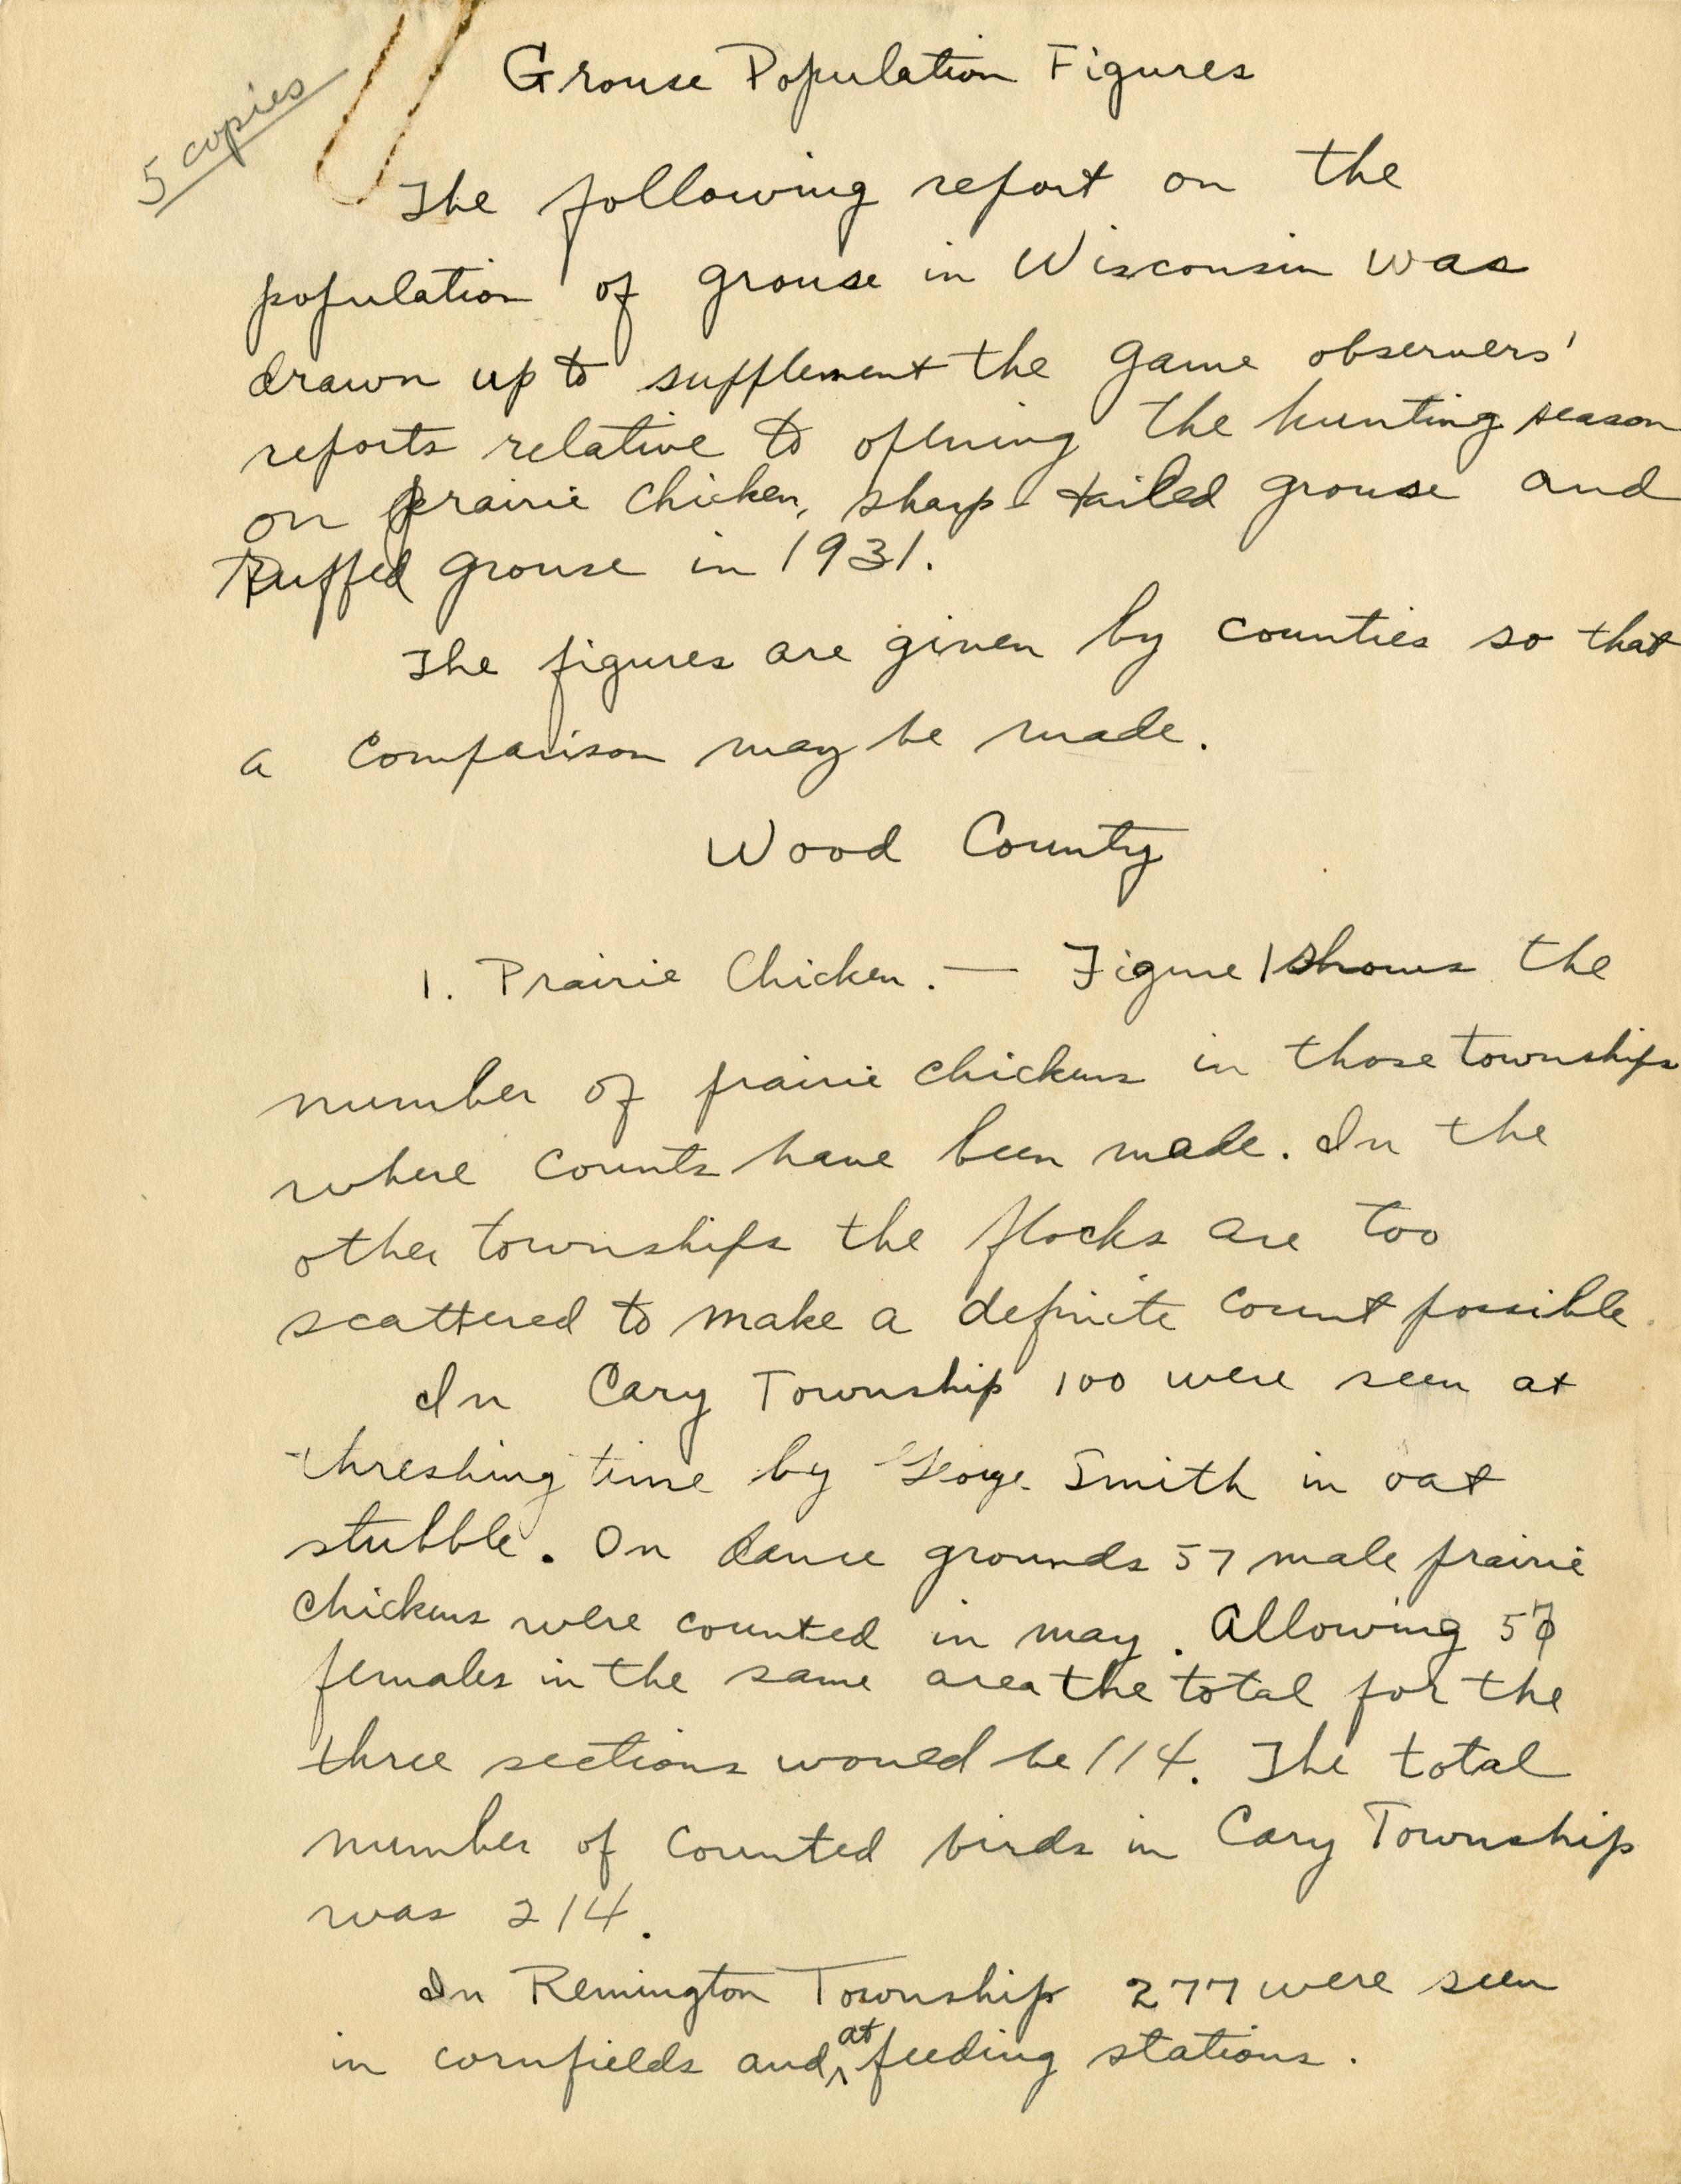 Grouse Population Figures
5 copies
The following report on the
population of grouse in Wisconsin was
drawn up to supplement the game observers'
reports relative to opening the hunting season
on prairie chicken, sharp-tailed grouse and
Ruffed grouse in 1931.
The figures are given by counties so that
a comparison may be made.
Wood County
1. Prairie Chicken. — Figure 1 shows the
number of prairie chickens in those townships
where counts have been made. In the
other townships the flocks are too
scattered to make a definite count possible.
In Cary Township 100 were seen at
threshing time by George Smith in oat
stubble. On dance grounds 57 male prairie
chickens were counted in may. Allowing 57
females in the same area the total for the
three sections would be 114. The total
number of counted birds in Cary Township
was 214.
In Remington Township 277 were seen
in cornfields and at feeding stations.